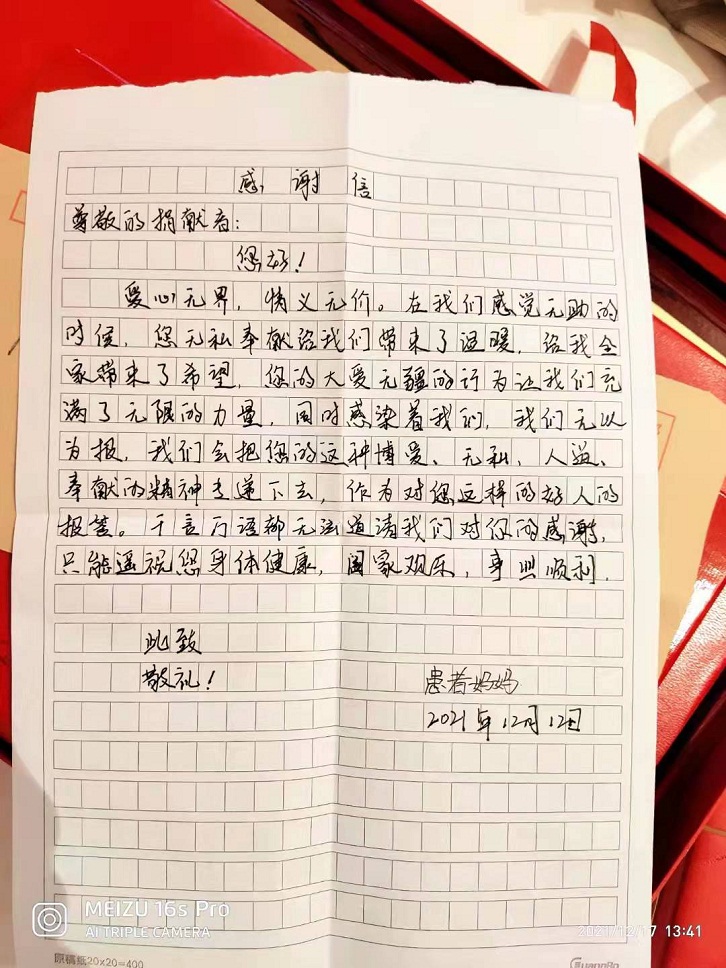 感谢信
尊敬的捐献者：
您好！
爱心无界，情义无价。在我们感觉无助的
时候，您无私奉献给我们带来了温暖，给我全
家带来了希望，您的大爱无疆的行为让我们充
满了无限的力量，同时感染着我们，我们无以
为报，我们会把您的这种博爱、无私、人道、
奉献的精神传递下去，作为对您这样的好人的
报答。千言万语都无法道清我们对你的感谢，
只能遥祝您身体健康，阖家欢乐，事业顺利.
此致
敬礼！
患者妈妈
2021年12月12日
MEIZU 16s Pro
AI TRIPLE CAMERA
2021/12/17 13:41
原稿纸20x20=400
GuangBo